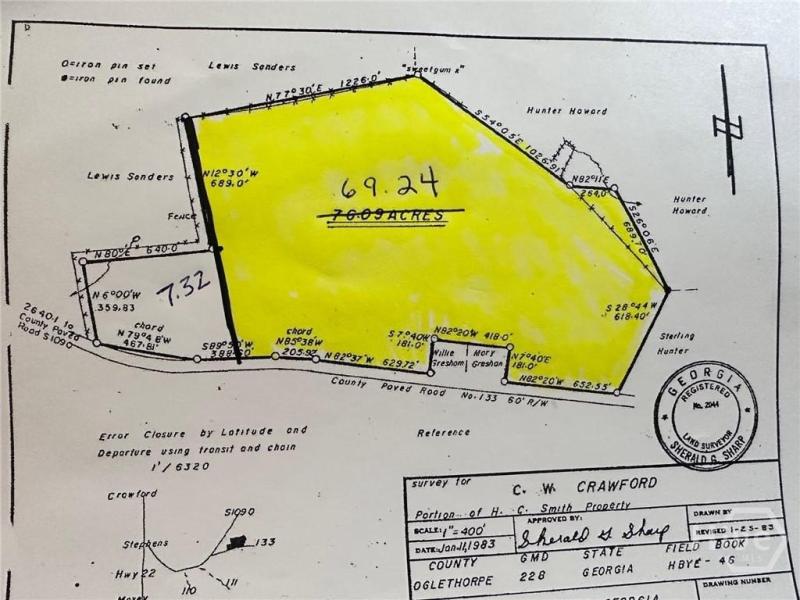 D
O=iron pin set
●=iron pin found
Lewis Sanders
N77°30'E 1226.0'
"sweetgum x"
S54°05'E 1026.91'
Hunter Howard
N82°11'E
264.0'
Hunter
Howard
S26°06'E
689.70'
Lewis Sanders
N12°30'W
689.0'
Fence
69.24
76.09 ACRES
N80°E 640.0'
7.32
N6°00'W
359.83
chord
N79°48'W
467.81'
2640.1 to
County Paved
Road S1090
S89°50'W
388.50
chord
N85°38'W
205.97
N82°37'W 629.72'
S7°40'W
181.0'
N82°20'W 418.0'
Willie
Gresham
Mary
Gresham
N7°40'E
181.0'
N82°20'W 652.55'
S28°44'W
618.40'
Sterling
Hunter
County Paved Road No. 133 60' R/W
GEORGIA
REGISTERED
No. 2044
LAND SURVEYOR
SHERALD G. SHARP
Error Closure by Latitude and
Departure using transit and chain
1'/6320
Reference
Crawford
S1090
Stephens
133
Hwy 22
110
111
Maxey
survey for
C. W. CRAWFORD
Portion of H. C. Smith Property
SCALE: 1"=400'
APPROVED BY:
DRAWN BY
DATE: Jan. 11, 1983
Sherald G Sharp
REVISED 1-25-83
COUNTY GMD STATE FIELD BOOK
OGLETHORPE 228 GEORGIA HBYE-46
DRAWING NUMBER
GEORGIA